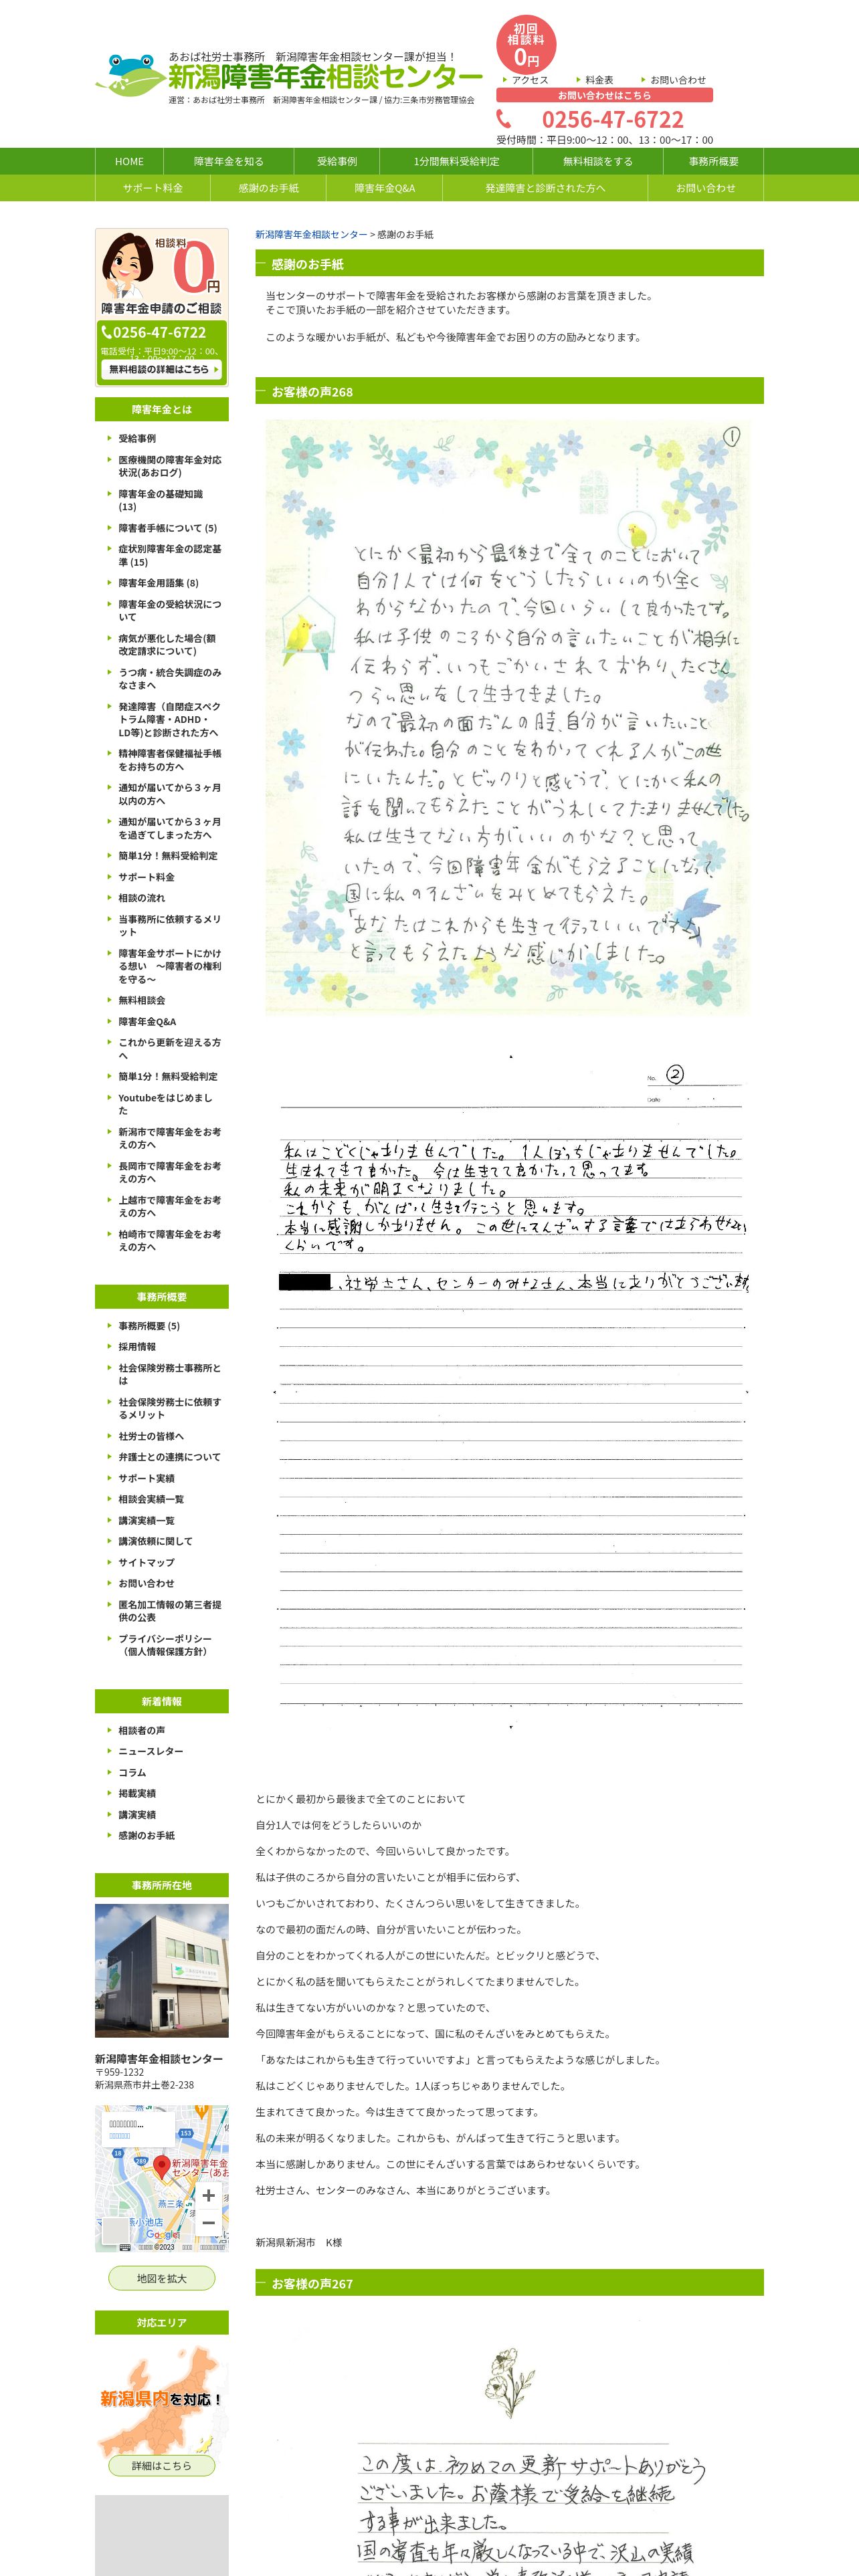 あおば社労士事務所　新潟障害年金相談センター課が担当！
新潟障害年金相談センター
運営：あおば社労士事務所　新潟障害年金相談センター課 / 協力:三条市労務管理協会
初回
相談料
0円
アクセス
料金表
お問い合わせ
お問い合わせはこちら
0256-47-6722
受付時間：平日9:00～12：00、13：00～17：00
HOME
障害年金を知る
受給事例
1分間無料受給判定
無料相談をする
事務所概要
サポート料金
感謝のお手紙
障害年金Q&A
発達障害と診断された方へ
お問い合わせ
相談料
0円
障害年金申請のご相談
0256-47-6722
電話受付：平日9:00～12：00、
13：00～17：00
無料相談の詳細はこちら
障害年金とは
受給事例
医療機関の障害年金対応
状況(あおログ)
障害年金の基礎知識
(13)
障害者手帳について (5)
症状別障害年金の認定基
準 (15)
障害年金用語集 (8)
障害年金の受給状況につ
いて
病気が悪化した場合(額
改定請求について)
うつ病・統合失調症のみ
なさまへ
発達障害（自閉症スペク
トラム障害・ADHD・
LD等)と診断された方へ
精神障害者保健福祉手帳
をお持ちの方へ
通知が届いてから３ヶ月
以内の方へ
通知が届いてから３ヶ月
を過ぎてしまった方へ
簡単1分！無料受給判定
サポート料金
相談の流れ
当事務所に依頼するメリ
ット
障害年金サポートにかけ
る想い　～障害者の権利
を守る～
無料相談会
障害年金Q&A
これから更新を迎える方
へ
簡単1分！無料受給判定
Youtubeをはじめまし
た
新潟市で障害年金をお考
えの方へ
長岡市で障害年金をお考
えの方へ
上越市で障害年金をお考
えの方へ
柏崎市で障害年金をお考
えの方へ
事務所概要
事務所概要 (5)
採用情報
社会保険労務士事務所と
は
社会保険労務士に依頼す
るメリット
社労士の皆様へ
弁護士との連携について
サポート実績
相談会実績一覧
講演実績一覧
講演依頼に関して
サイトマップ
お問い合わせ
匿名加工情報の第三者提
供の公表
プライバシーポリシー
（個人情報保護方針）
新着情報
相談者の声
ニュースレター
コラム
掲載実績
講演実績
感謝のお手紙
事務所所在地
新潟障害年金相談センター
〒959-1232
新潟県燕市井土巻2-238
新潟障害年金
センター(あお
燕三条
燕小池店
Google
©2023
地図を拡大
対応エリア
新潟県内を対応！
詳細はこちら
新潟障害年金相談センター > 感謝のお手紙
感謝のお手紙
当センターのサポートで障害年金を受給されたお客様から感謝のお言葉を頂きました。
そこで頂いたお手紙の一部を紹介させていただきます。
このような暖かいお手紙が、私どもや今後障害年金でお困りの方の励みとなります。
お客様の声268
①
とにかく最初から最後まで全てのことにおいて
自分1人では何をどうしたらいいのか全く
わからなかったので、今回いらいして良かったです。
私は子供のころから自分の言いたいことが相手に
伝わらず、いつもごかいされており、たくさん
つらい思いをして生きてきました。
なので最初の面だんの時、自分が言いたいこと
が伝わった。自分のことをわかってくれる人がこの世
にいたんだ。とビックリと感どうで、とにかく私の
話を聞いてもらえたことがうれしくてたまりませんでした。
私は生きてない方がいいのかな？と思って
いたので、今回障害年金がもらえることになって、
国に私のそんざいをみとめてもらえた。
「あなたはこれからも生きて行っていいですよ」
と言ってもらえたような感じがしました。
No. ②
Date
私はこどくじゃありませんでした。1人ぼっちじゃありませんでした。
生まれてきて良かった。今は生きてて良かったって思ってます。
私の未来が明るくなりました。
これからも、がんばって生きて行こうと思います。
本当に感謝しかありません。この世にそんざいする言葉ではあらわせない
くらいです。
、社労士さん、センターのみなさん、本当にありがとうございます。
とにかく最初から最後まで全てのことにおいて
自分1人では何をどうしたらいいのか
全くわからなかったので、今回いらいして良かったです。
私は子供のころから自分の言いたいことが相手に伝わらず、
いつもごかいされており、たくさんつらい思いをして生きてきました。
なので最初の面だんの時、自分が言いたいことが伝わった。
自分のことをわかってくれる人がこの世にいたんだ。とビックリと感どうで、
とにかく私の話を聞いてもらえたことがうれしくてたまりませんでした。
私は生きてない方がいいのかな？と思っていたので、
今回障害年金がもらえることになって、国に私のそんざいをみとめてもらえた。
「あなたはこれからも生きて行っていいですよ」と言ってもらえたような感じがしました。
私はこどくじゃありませんでした。1人ぼっちじゃありませんでした。
生まれてきて良かった。今は生きてて良かったって思ってます。
私の未来が明るくなりました。これからも、がんばって生きて行こうと思います。
本当に感謝しかありません。この世にそんざいする言葉ではあらわせないくらいです。
社労士さん、センターのみなさん、本当にありがとうございます。
新潟県新潟市　K様
お客様の声267
この度は、初めての更新サポートありがとう
ございました。お蔭様で受給を継続
する事が出来ました。
国の審査も年々厳しくなっている中で、沢山の実績